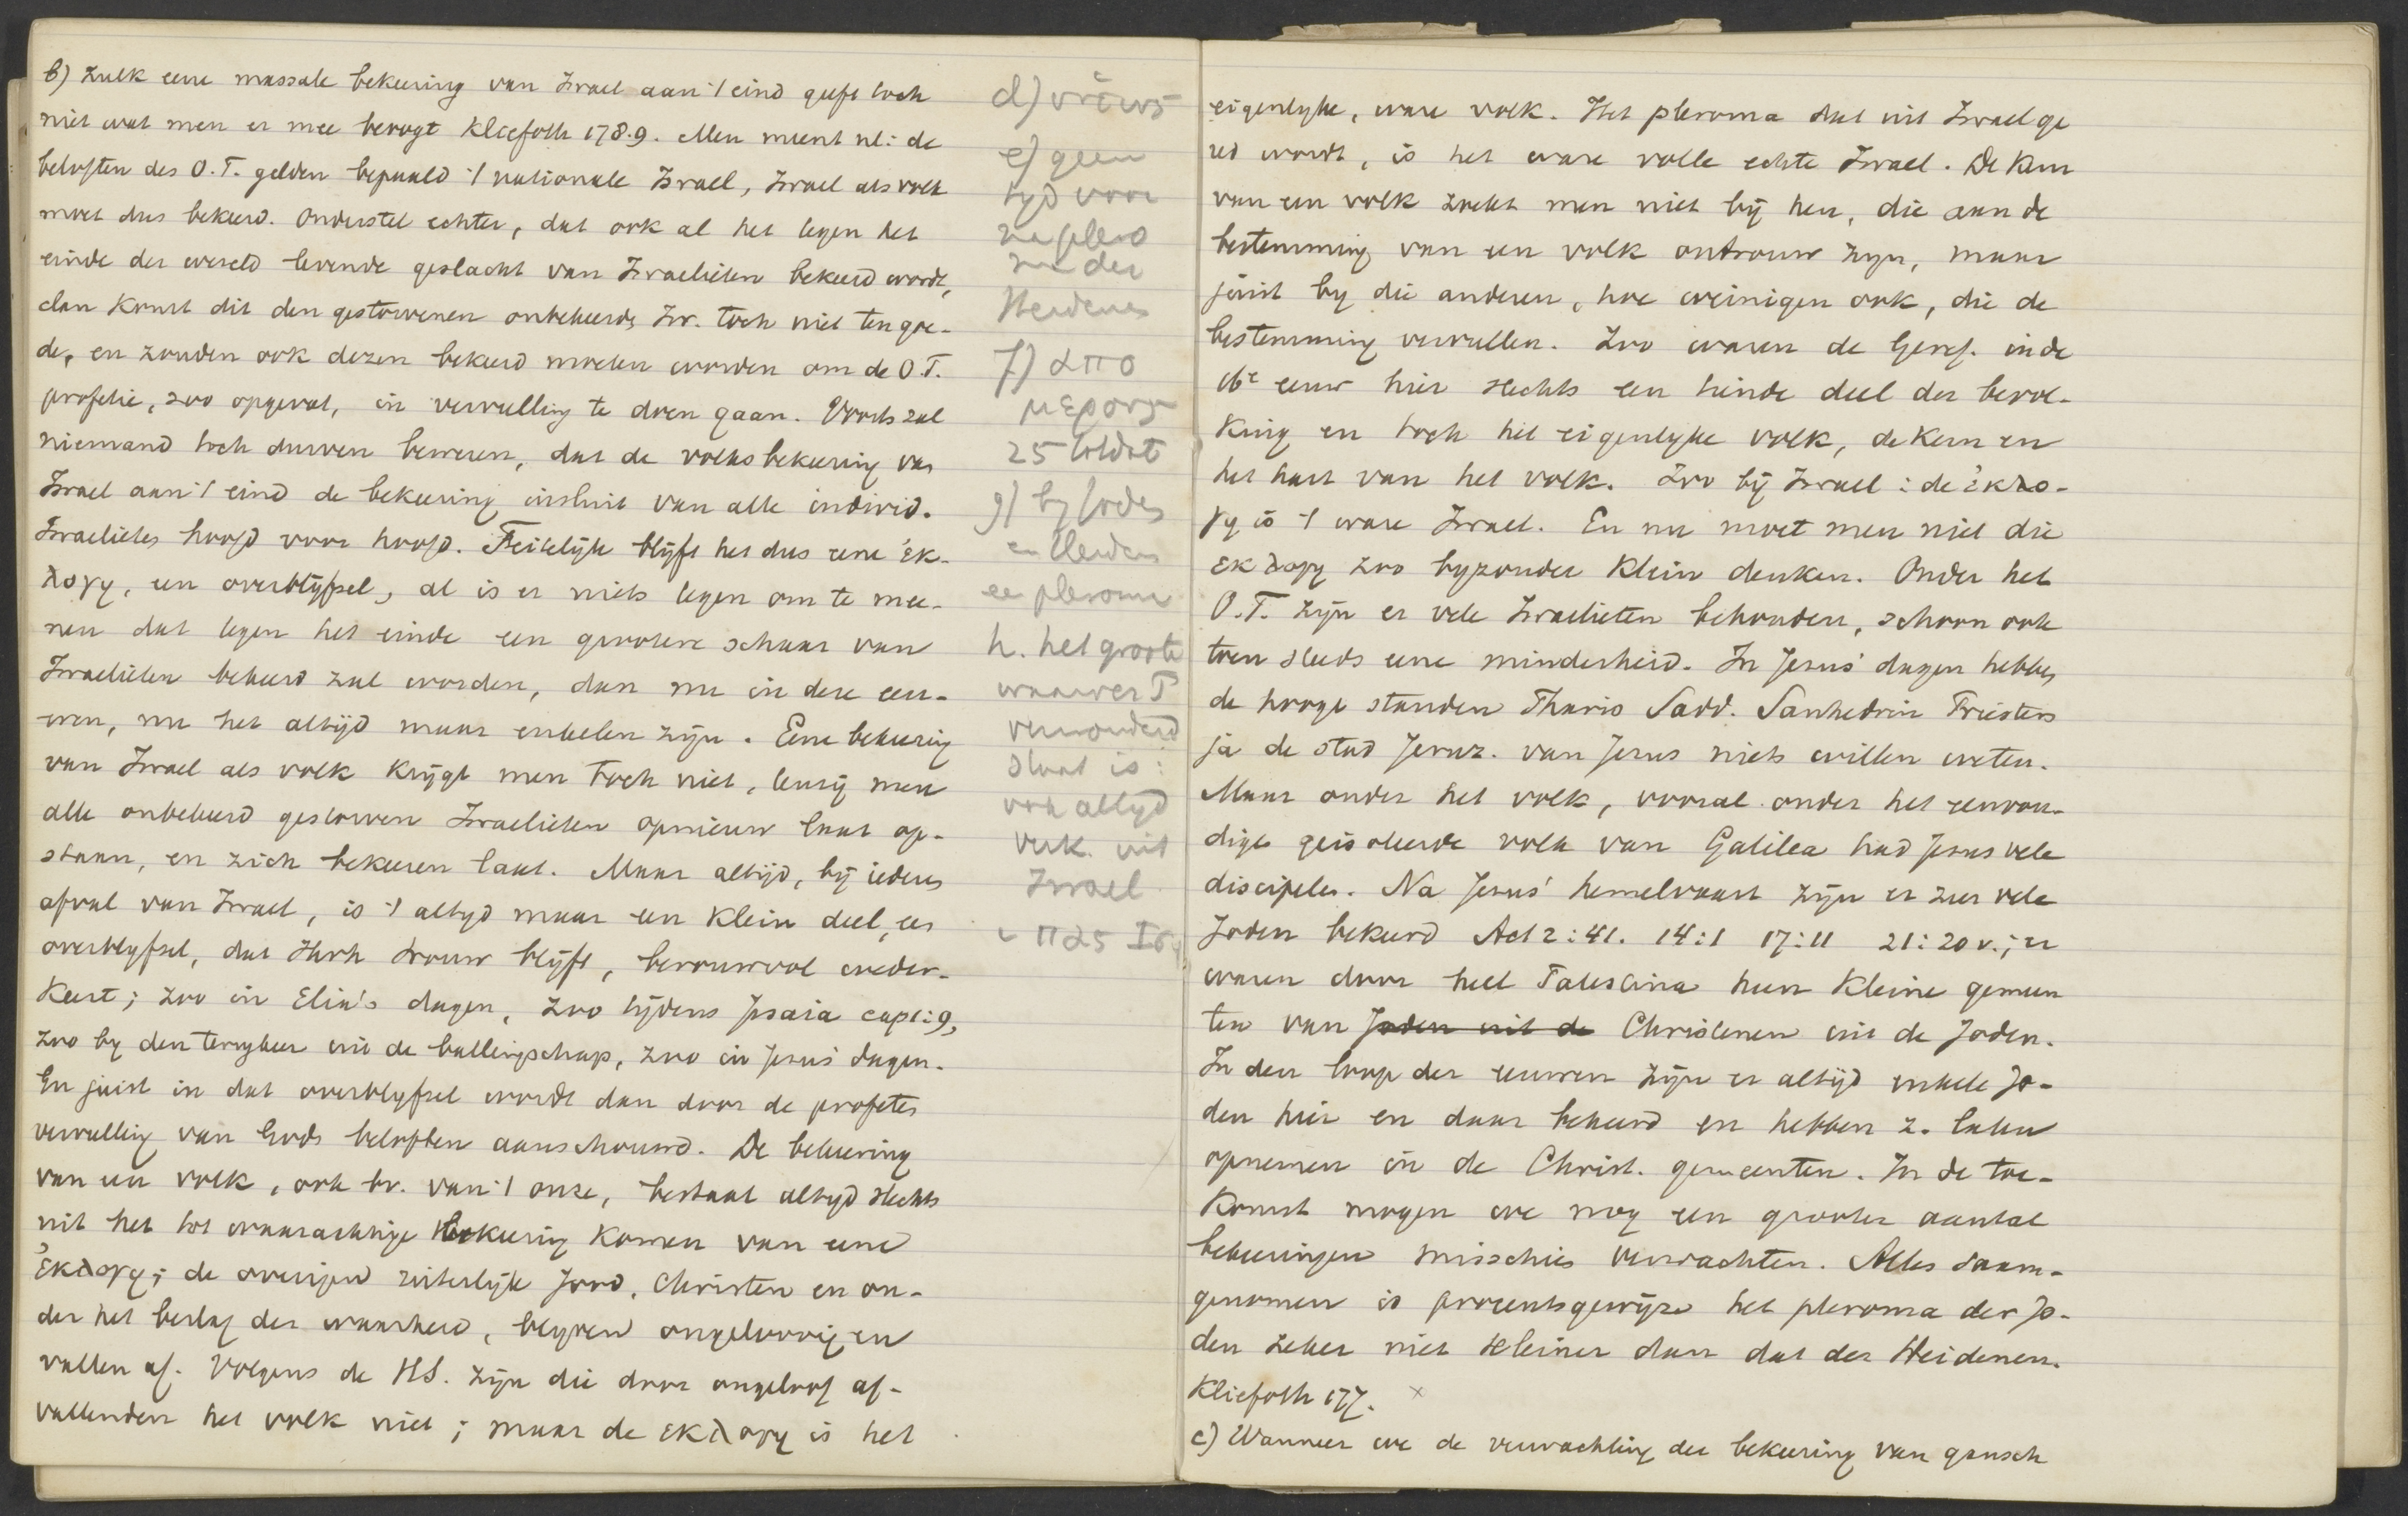 b) Zulk eene massale bekeering van Israel aan 't eind geeft toch
niet wat men er mee beoogt Kliefoth 178.9. Men meent nl: de
beloften des O.T. gelden bepaald 't nationale Israel, Israel als volk
moet dus bekeerd. Onderstel echter, dat ook al het tegen het
einde der wereld levende geslacht van Israelieten bekeerd wordt,
dan komt dit den gestorvenen onbekeerde Isr. toch niet ten goe-
de, en zouden ook dezen bekeerd moeten worden om de O.T.
profetie, zoo opgevat, in vervulling te doen gaan. Voorts zal
niemand toch durven beweren, dat de volksbekeering van
Israel aan 't eind de bekeering insluit van alle individ.
Israelieten hoofd voor hoofd. Feitelijk blijft het dus eene ἐκ-
λογη, een overblijfsel, al is er niets tegen om te mee-
nen dat tegen het einde een grootere schaar van
Israelieten bekeerd zal worden, dan nu in deze eeu-
wen, nu het altijd maar enkelen zijn. Eene bekeering
van Israel als volk krijgt men toch niet, tenzij men
alle onbekeerd gestorven Israelieten opnieuw laat op-
staan, en zich bekeeren laat. Maar altijd, bij iederen
afval van Israel, is 't altyd maar een klein deel, een
overblyfsel, dat Jhvh trouw blijft, berouwvol weder-
keert; zoo in Elia's dagen, zoo tijdens Jesaia cap 1:9,
zoo by den terugkeer uit de ballingschap, zoo in Jezus' dagen.
En juist in dat overblyfsel wordt dan door de profeten
vervulling van Gods beloften aanschouwd. De bekeering
van een volk, ook bv. van 't onze, bestaat altyd slechts
uit het tot waarachtige bekeering komen van eene
ἐκλογη; de overigen uiterlijk Jood, Christen en on-
der het beslag der waarheid, blyven ongeloovig en
vallen af. Volgens de HS. zijn die door ongeloof af-
vallenden het volk niet; maar de εκλογη is het
d) οὕτως
e) geen
tyd voor
na plero
ma der
Heidenen
f) απο
μερους
25 totdat
g) by Joden
en Heidenen
een pleroma
h. het groote
waarover P
verwonderd
staat is:
ook altyd
verk. uit
Israel
πας Ισρ
eigenlyke, ware volk. Het pleroma dat uit Israel ge
red wordt, is het ware volle echte Israel. De kern
van een volk zoekt men niet bij hen, die aan de
bestemming van een volk ontrouw zyn, maar
juist by die anderen, hoe weinigen ook, die de
bestemming vervullen. Zoo waren de Geref. in de
16e eeuw hier slechts een tiende deel der bevol-
king en toch het eigenlyke volk, de kern en
het hart van het volk. Zoo bij Israel: de ἐκλο-
γη is 't ware Israel. En nu moet men niet die
εκλογη zoo byzonder klein denken. Onder het
O.T. zijn er vele Israelieten behouden, schoon ook
toen steeds eene minderheid. In Jezus' dagen hebben
de hooge standen Phariz Sadd. Sanhedrin Priesters
ja de stad Jeruz. van Jezus niets willen weten.
Maar onder het volk, vooral onder het eenvou-
dige geisoleerde volk van Galilea had Jezus vele
discipelen. Na Jezus' hemelvaart zijn er zeer vele
Joden bekeerd Act 2:41. 14:1 17:11 21:20 v.; er
waren door heel Palestina heen kleine gemeen
ten van Joden uit de Christenen uit de Joden.
In den loop der eeuwen zijn er altijd enkele Jo-
den hier en daar bekeerd en hebben z. laten
opnemen in de Christ. gemeenten. In de toe-
komst mogen we nog een grooter aantal
bekeeringen misschien verwachten. Alles saam-
genomen is procentsgewijze het pleroma der Jo-
den zeker niet kleiner dan dat der Heidenen.
Kliefoth 177. ×
c) Wanneer we de verwachting der bekeering van gansch